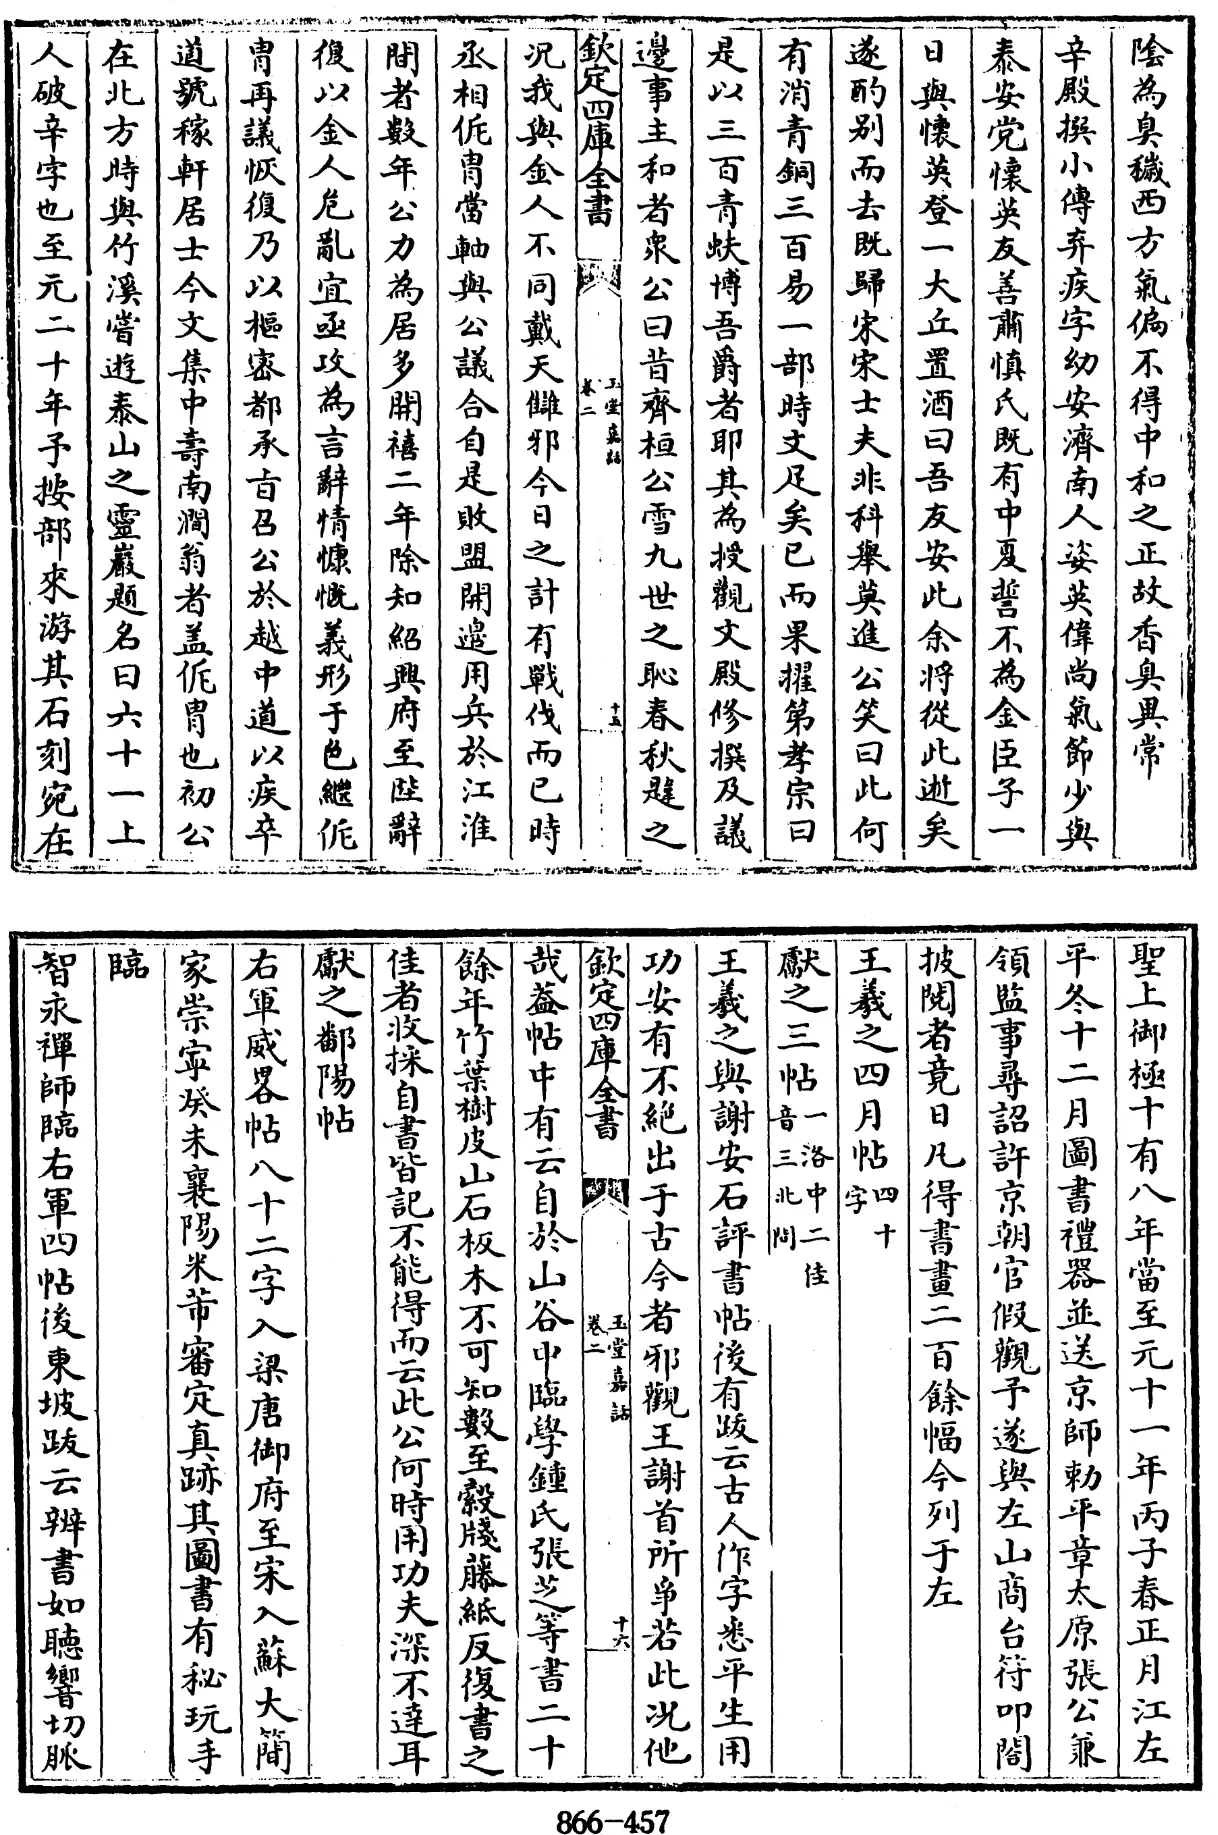 陰為臭穢西方氣偏不得中和之正故香臭異常
辛殿撰小傳弃疾字幼安濟南人姿英偉尚氣節少與
泰安党懷英友善肅慎氏既有中夏誓不為金臣子一
日與懷英登一大丘置酒曰吾友安此余將從此逝矣
遂酌别而去既歸宋宋士夫非科舉莫進公笑曰此何
有消青銅三百易一部時文足矣已而果擢第孝宗曰
是以三百青蚨博吾爵者耶其為授觀文殿修撰及議
邊事主和者衆公曰昔齊桓公雪九世之恥春秋韙之
欽定四庫全書
玉堂嘉話
卷二
十五
况我與金人不同戴天讎邪今日之計有戰伐而已時
丞相侂胄當軸與公議合自是敗盟開邉用兵於江淮
間者數年公力為居多開禧二年除知紹興府至陛辭
復以金人危亂宜亟攻為言辭情慷慨義形于色繼侂
胄再議恢復乃以樞密都承旨召公於越中道以疾卒
道號稼軒居士今文集中壽南澗翁者盖侂胄也初公
在北方時與竹溪嘗遊泰山之靈巖題名曰六十一上
人破辛字也至元二十年予按部來游其石刻宛在
聖上御極十有八年當至元十一年丙子春正月江左
平冬十二月圖書禮器並送京師勅平章太原張公兼
領監事尋詔許京朝官假觀予遂與左山商台符叩閤
披閱者竟日凡得書畫二百餘幅今列于左
王羲之四月帖四十字
獻之三帖一洛中二佳音三北問
王羲之與謝安石評書帖後有跋云古人作字悉平生用
功安有不絶出于古今者邪觀王謝首所爭若此况他
欽定四庫全書
玉堂嘉話
卷二
十六
哉葢帖中有云自於山谷中臨學鍾氏張芝等書二十
餘年竹葉樹皮山石板木不可知數至縠牋藤紙反復書之
佳者收採自書皆記不能得而云此公何時用功夫深不達耳
獻之鄱陽帖
右軍威畧帖八十二字入梁唐御府至宋入蘇大簡
家崇寧癸未襄陽米芾審定真跡其圖書有秘玩手
臨
智永禪師臨右軍四帖後東坡跋云辨書如聴響切脈
866-457